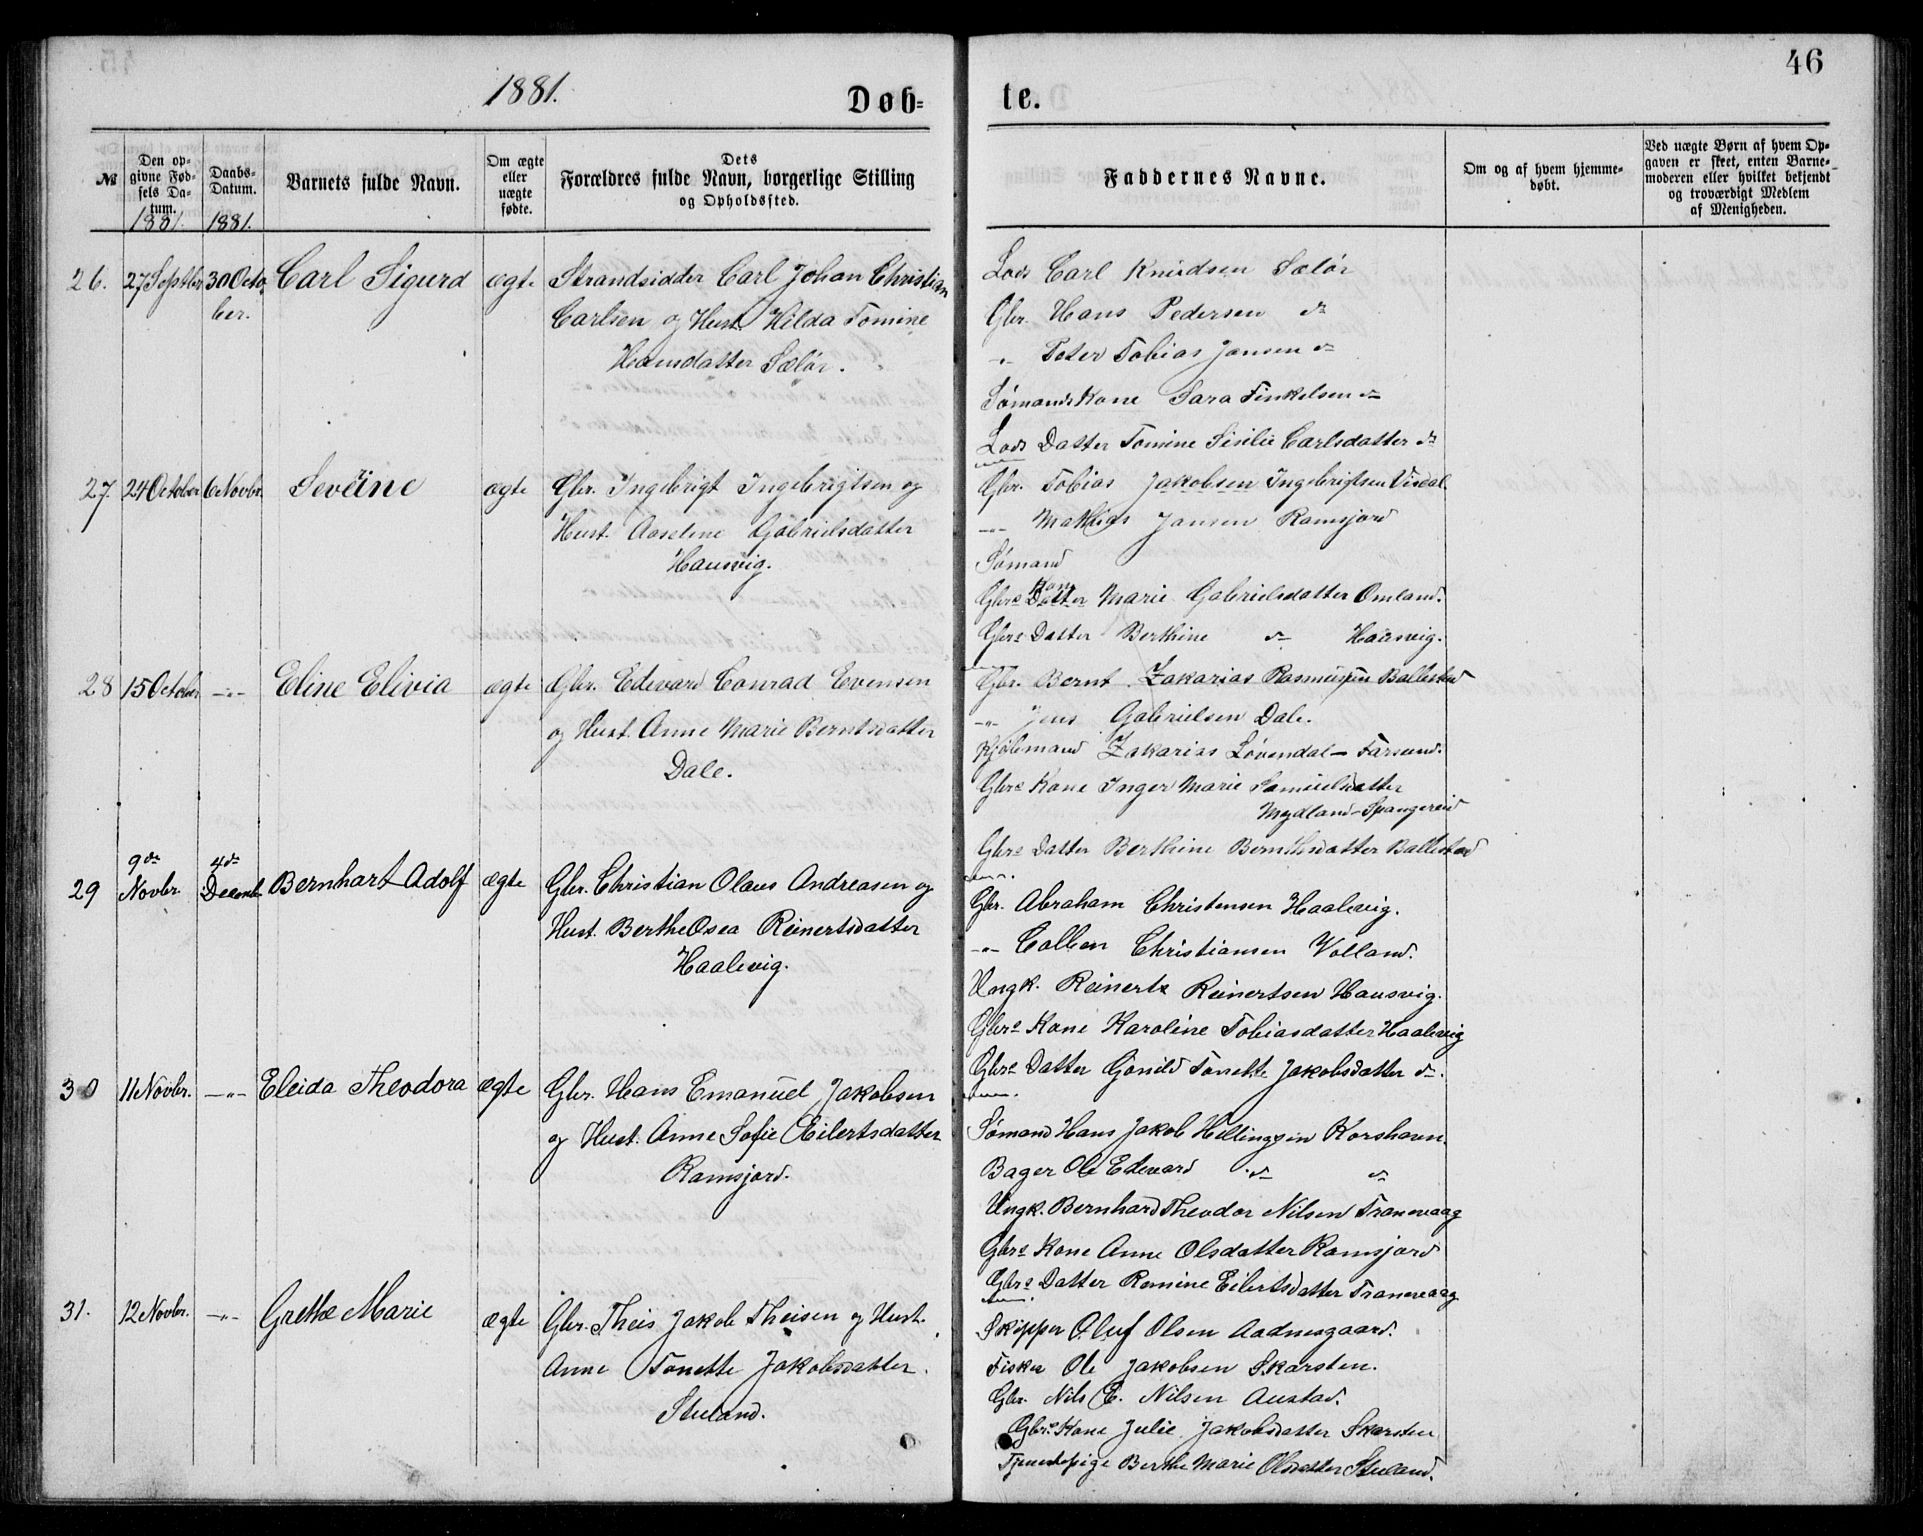 46
1881.
Døb=
te.
№
Den op-
givne Fød-
sels Da-
tum.
1881.
Daabs-
Datum.
1881.
Barnets fulde Navn.
Om ægte
eller
uægte
fødte.
Dets
Forældres fulde Navn, borgerlige Stilling
og Opholdssted.
Faddernes Navne.
Om og af hvem hjemme-
døbt.
Ved uægte Børn af hvem Op-
gaven er skeet, enten Barne-
moderen eller hvilket bekjendt
og troværdigt Medlem
af Menigheden.
26. 27 Septbr 30 Octo- Carl Sigurd ægte Strandsidder Carl Johan Christian
ber. Carlsen og Hust. Hilda Tomine
Hansdatter Sælør.
Lods Carl Knudsen Sælør
Gbr. Hans Pedersen do
-"- Peter Tobias Jansen do
Sømands Kone Sara Finkelsen do
Lods Datter Tomine Sisilie Carlsdatter do
27. 24 October 6 Novbr. Sevrine ægte Gbr. Ingebrigt Ingebrigtsen og
Hust. Aaselene Gabrielsdatter
Hausvig.
Gbr. Tobias Jakobsen Ingebrigtsen Visdal
-"- Mathias Jansen Ramsjord
Sømand
Kone
Gbrs Datter Marie Gabrielsdatter Omland.
Gbrs Datter Berthine do Hausvig.
28 15 October -"- Eline Elivia ægte Gbr. Edevard Conrad Evensen
og Hust. Anne Marie Berntsdatter
Dale.
Gbr. Bernt Zakarias Rasmussen Ballestad
-"- Jens Gabrielsen Dale.
Kjøbmand Zakarias Løvendal - Farsund.
Gbrs Kone Inger Marie Samuelsdatter
Mydland - Spangereid
Gbrs Datter Berthine Berntsdatter Ballestad
29 9de Novbr. 4de Decemb. Bernhart Adolf ægte Gbr. Christian Olaus Andreasen og
Hust. Berthe Osea Reinertsdatter
Haalevig.
Gbr. Abraham Christensen Haalevig.
-"- Colben Christiansen Volland.
Ungk. Reinert Reinertsen Hausvig.
Gbrs Kone Karoline Tobiasdatter Haalevig
Gbrs Datter Gonild Tonette Jakobsdatter do.
30 11 Novbr. -"- Eleida Theodora ægte Gbr. Hans Emanuel Jakobsen
og Hust. Anne Sofie Eilertsdatter
Ramsjord.
Sømand Hans Jakob Hellingsen Korshavn.
Bager Ole Edevard do do
Ungk. Bernhard Theodor Nilsen Tranevaag
Gbrs Kone Anne Olsdatter Ramsjord
Gbrs Datter Romine Eilertsdatter Tranevaag
31. 12 Novbr. -"- Grethe Marie ægte Gbr. Theis Jakob Theisen og Hust.
Anne Tonette Jakobsdatter
Stuland.
Skipper Oluf Olsen Aadnesgaard.
Fisker Ole Jakobsen Skarsten.
Gbr. Nils E. Nilsen Austad.
Gbrs Kone Julie Jakobsdatter Skarsten
Tjenestepige Berthe Marie Olsdatter Stuland.